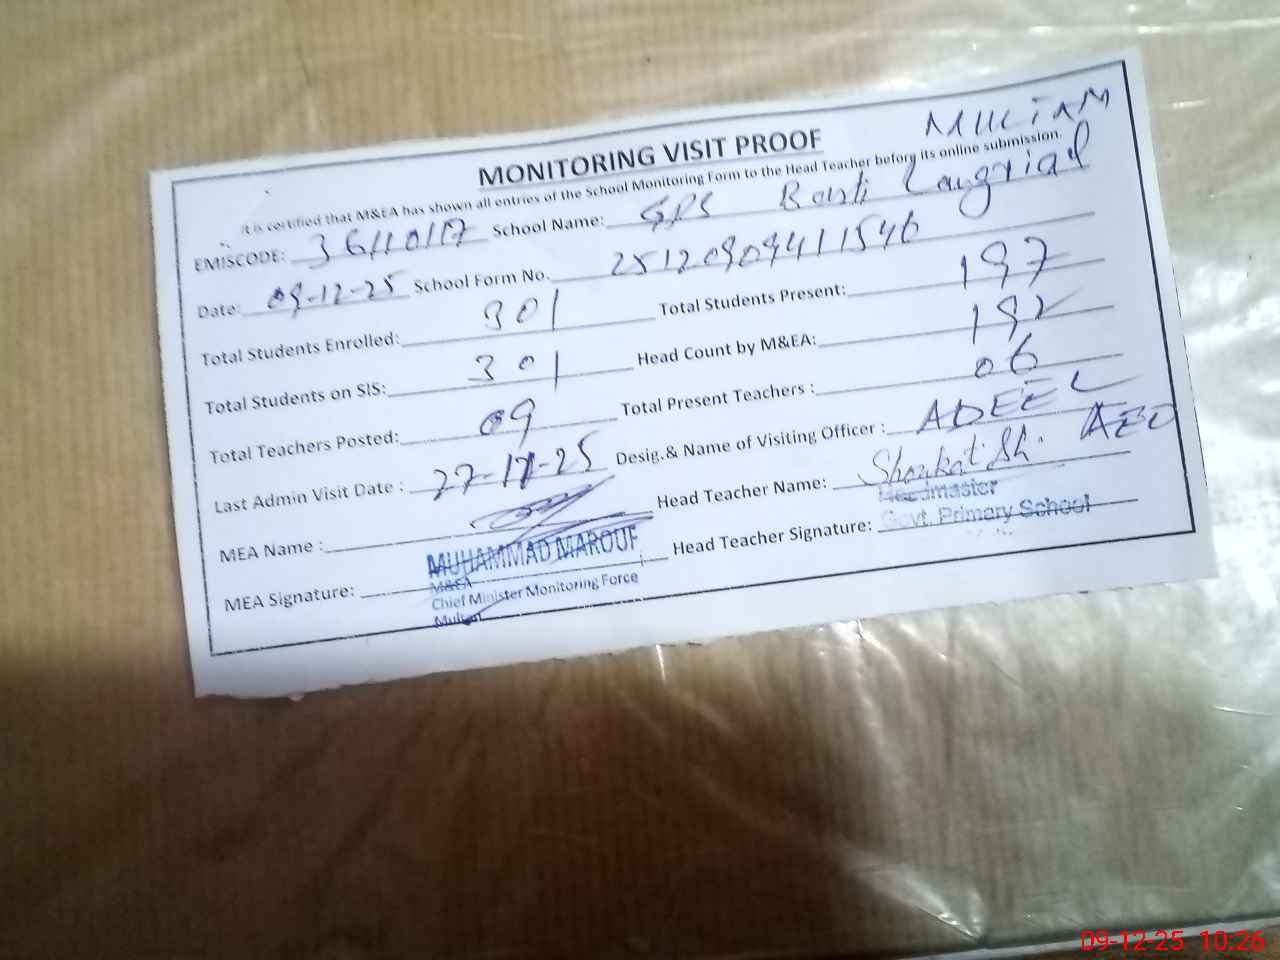 MONITORING VISIT PROOF
It is certified that M&EA has shown all entries of the School Monitoring Form to the Head Teacher before its online submission.
EMISCODE: 36110117 School Name: GPS Basti Langrial
Date: 09-12-25 School Form No. 25120909411546
Total Students Enrolled: 301 Total Students Present: 197
Total Students on SIS: 301 Head Count by M&EA: 192
Total Teachers Posted: 09 Total Present Teachers : 06
Last Admin Visit Date : 27-11-25 Desig.& Name of Visiting Officer : ADEEL AEO
MEA Name : Head Teacher Name: Shoukat
MEA Signature: Head Teacher Signature:
MUHAMMAD MAROUF
M&EA
Chief Minister Monitoring Force
Multan
Headmaster
Govt. Primary School
09-12-25 10:26